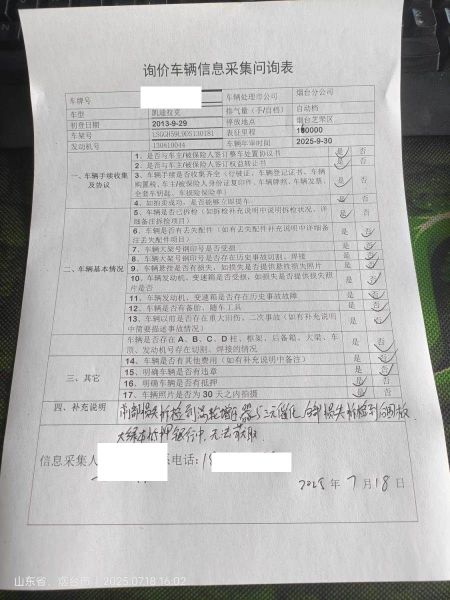 询价车辆信息采集问询表
车牌号 车辆处理分公司 烟台分公司
车型 凯迪拉克 排气量(手/自档) 自动档
初登日期 2013-9-29 停放地点 烟台芝罘区
车架号 表征里程
发动机号 130610044 车辆年审时间 2025-9-30
一、车辆手续收集及协议
1、是否与车主/被保险人签订整车处置协议书 是 否
2、是否与车主/被保险人签订权益转让书 是 否
3、车辆手续是否收集齐全(行驶证、车辆登记证书、车辆购置税、车主/被保险人身份证复印件、车辆牌照、车辆发票、全套车钥匙、车损险保险单) 是 否
4、如拍卖成功,是否能够立即提车 是 否
二、车辆基本情况
5、车辆是否已拆检(如拆检补充说明中说明拆检状况,详细备注拆检项目) 是 否
6、车辆是否有丢失配件(如有丢失配件补充说明中详细备注丢失配件项目) 是 否
7、车辆大架号钢印号是否受损 是 否
8、车辆大架号钢印号是否存在历史事故切割、焊接 是 否
9、车辆悬挂是否有损失,如损失是否提供悬挂损失照片 是 否
10、车辆发动机、变速箱是否受损,如损失是否提供损失照片是否 是 否
11、车辆发动机、变速箱是否存在历史事故故障 是 否
12、车辆是否有备胎、随车工具 是 否
13、车辆以前是否存在重大旧伤、二次事故(如有补充说明中简要描述事故情况) 是 否
车辆是否存在A、B、C、D柱、框架、后备箱、大梁、车顶、发动机号存在切割、焊接的情况 是 否
三、其它
14、车辆是否有其他费用(如有补充说明中备注) 是 否
15、明确车辆是否有违章 是 否
16、明确车辆是否有抵押 是 否
17、车辆照片是否为30天之内拍摄 是 否
四、补充说明
大绿本抵押银行中,无法获取.
信息采集人 电话:
年 7月18日
山东省·烟台市 | 2025.07.18 16:02